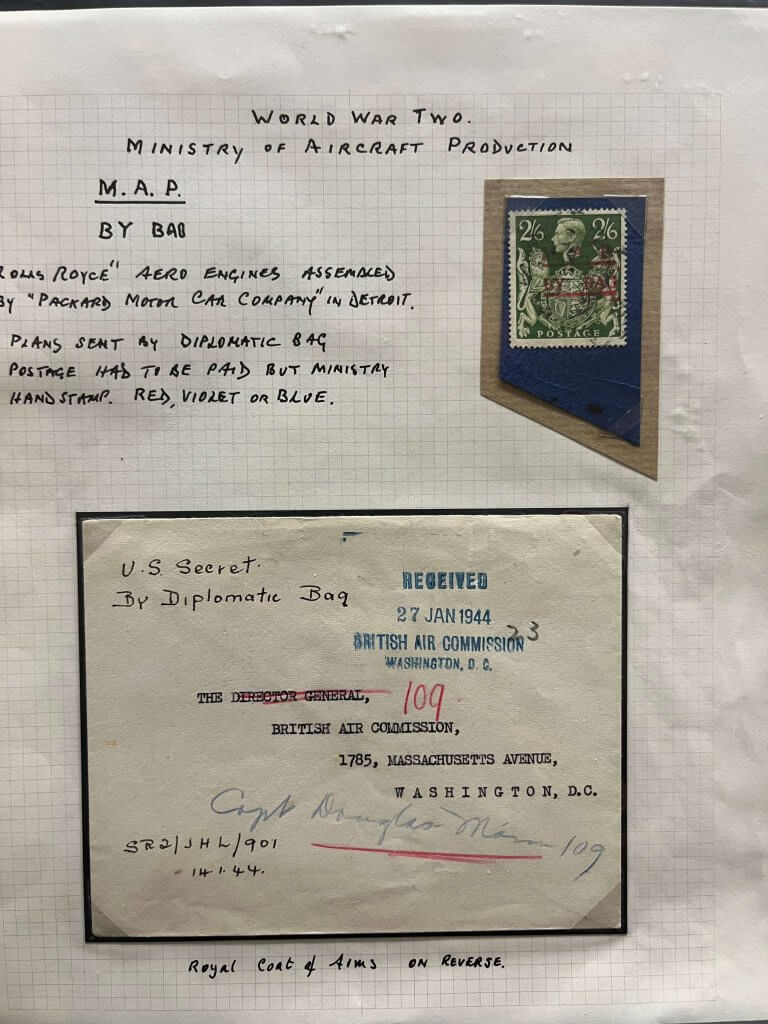 WORLD WAR TWO.
MINISTRY OF AIRCRAFT PRODUCTION
M.A.P.
BY BAG
OLLS ROYCE" AERO ENGINES ASSEMBLED
BY "PACKARD MOTOR CAR COMPANY" IN DETROIT.
PLANS SENT BY DIPLOMATIC BAG
POSTAGE HAD TO BE PAID BUT MINISTRY
HANDSTAMP. RED, VIOLET OR BLUE.
2/6 2/6
BY BAG
POSTAGE
U.S. Secret.
By Diplomatic Bag
RECEIVED
27 JAN 1944
23
BRITISH AIR COMMISSION
WASHINGTON, D.C.
THE DIRECTOR GENERAL, 109
BRITISH AIR COMMISSION,
1785, MASSACHUSETTS AVENUE,
WASHINGTON, D.C.
Capt Douglas Mann 109
SR2/JHL/901
14.1.44.
Royal Coat of Arms ON REVERSE.